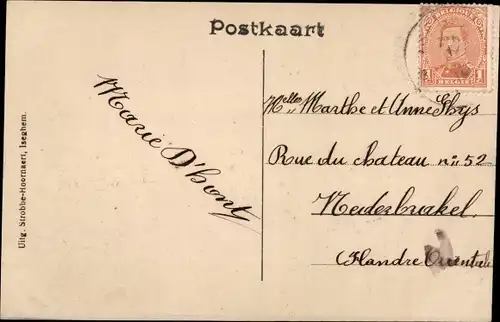 Postkaart
BELGIQUE
1 BELGIË 1
Marie D'hont
Melles Marthe et Anne Thys
Rue du chateau n: 52
Nederbrakel.
(Flandre Orientale
Uitg. Strobbe-Hoornaert, Iseghem.